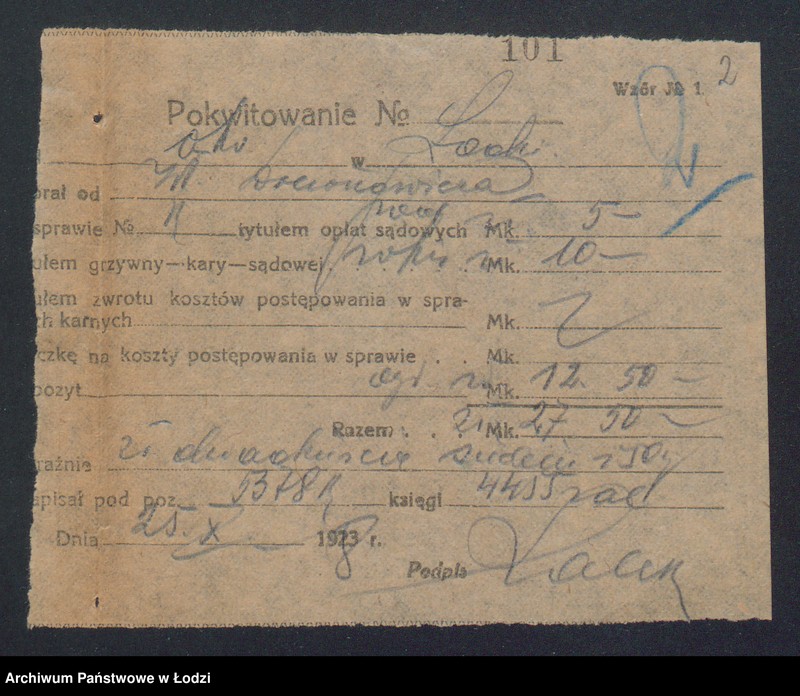 101
2
Wzór № 1.
Pokwitowanie №
w Łodzi.
brał od
sprawie № tytułem opłat sądowych Mk. 5-
ułem grzywny—kary—sądowej Mk. 10-
ułem zwrotu kosztów postępowania w spra-
ch karnych Mk.
czkę na koszty postępowania w sprawie . . Mk.
pozyt ogł. Mk. 12. 50 -
Razem . . . Mk. 27 50 -
raźnie zł dwadzieścia siedem i 50
apisał pod poz. 5378 księgi 4455
Dnia 25. X 1923 r. 8
Podpis
Archiwum Państwowe w Łodzi